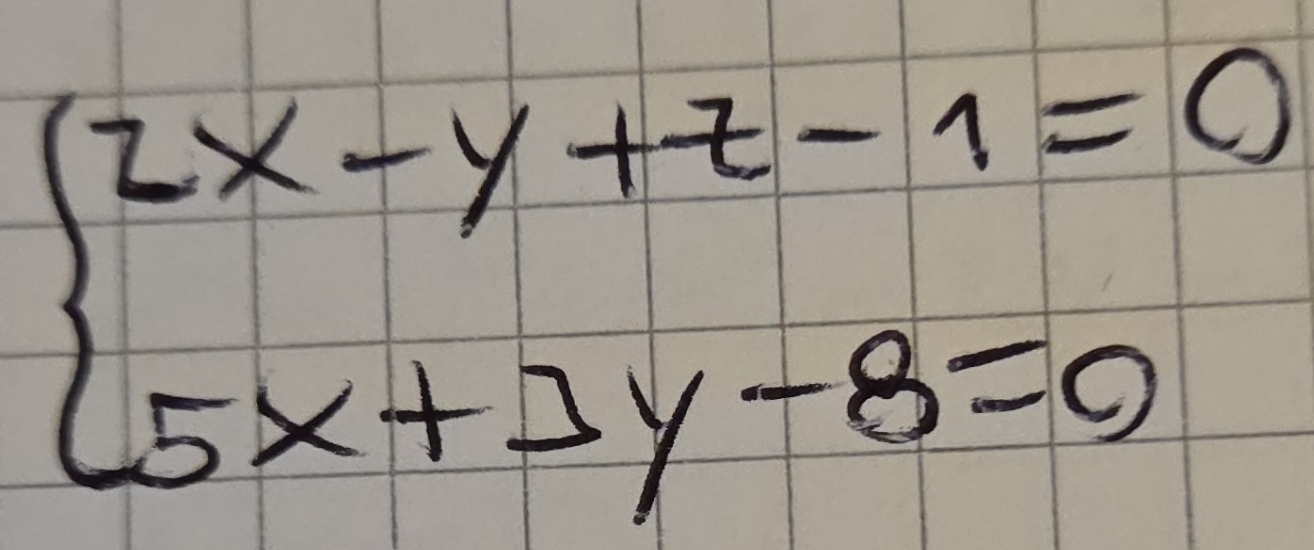 2x - y + z - 1 = 0
5x + 3y - 8 = 0